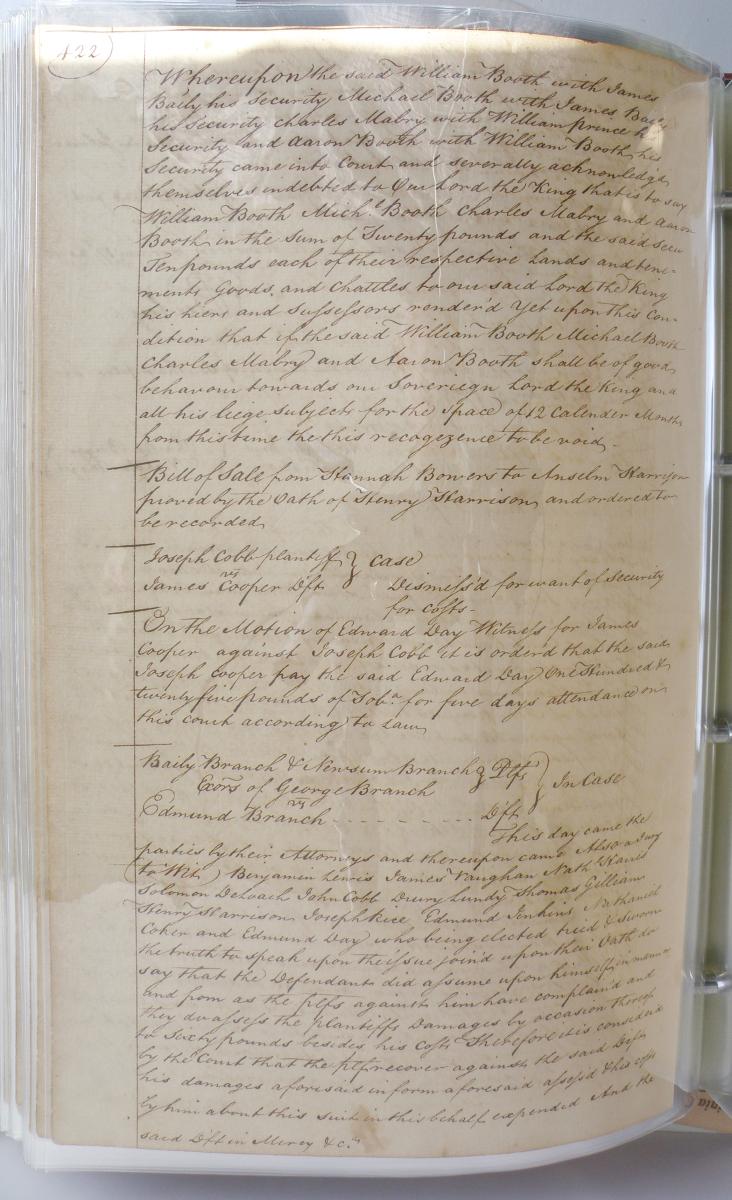 422
Whereupon the said William Booth with James
Baily his Security Michael Booth with James Baily
his security charles Mabry with William prince his
Security and Aaron Booth with William Booth his
Security came into Court and severally acknowledge
themselves indebted to Our Lord the King that is to say
William Booth Mich.l Booth Charles Mabry and Aaron
Booth in the Sum of Twenty pounds and the said Secu
Ten pounds each of their respective Lands and tene-
ments Goods, and Chattles to our said Lord the King
his hiers and Sussessors render'd Yet upon this Con-
dition that if the said William Booth Michael Booth
Charles Mabry and Aaron Booth shall be of good
behavour towards our Sovereign Lord the King and
all his liege Subjects for the Space of 12 Calender Months
from this time the this recogezence to be void -
Bill of Sale from Hannah Bowers to Anselm Harrison
proved by the Oath of Henry Harrison, and ordered to
be recorded
Joseph Cobb plantiff } Case
vs
James Cooper Dft Dismiss'd for want of Security
for costs -
On the Motion of Edward Day Witness for James
Cooper against Joseph Cobb it is order'd that the said
Joseph Cooper pay the said Edward Day One Hundred &
twenty five pounds of Tob.o for five days attendance on
this court according to Law
Baily Branch & Newsum Branch } Plfs } In Case
Exors of George Branch
vs
Edmund Branch - - - - - - - - - Dft
This day came the
parties by their Attorneys and thereupon came Also a Jury
(to Wit) Benjamin Lewis James Vaughan Nath
Solomon Deloach John Cobb Drury Lundy Thomas Gilliam
Henry Harrison Joseph Rice Edmund Jenkins Nathaniel
Coker and Edmund Day who being elected tried & sworn
the truth to speak upon the issue joind upon their Oath do
say that the Defendant did assume upon himself in manner
and from as the plfs against him have complain'd and
they do assess the plantiffs Damages by occasion thereof
to Sixty pounds besides his Costs Therefore it is considered
by the Court that the plf recover against the said Dft
his damages aforesaid in form aforesaid assess'd & his costs
by him about this suit in this behalf expended And the
said Dft in Mercy &c.a